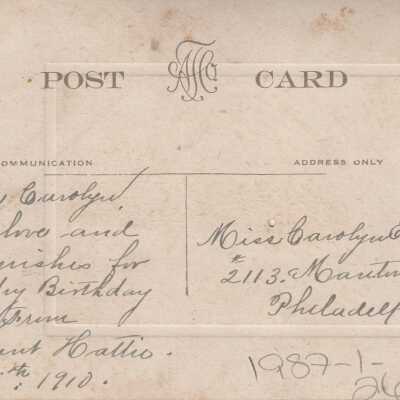 POST CARD
OMMUNICATION
ADDRESS ONLY
Carolyn,
love and
wishes for
Birthday
From
Aunt Hattie.
th 1910.
Miss Carolyn E
# 2113. Manton
Philadel
1987-1-